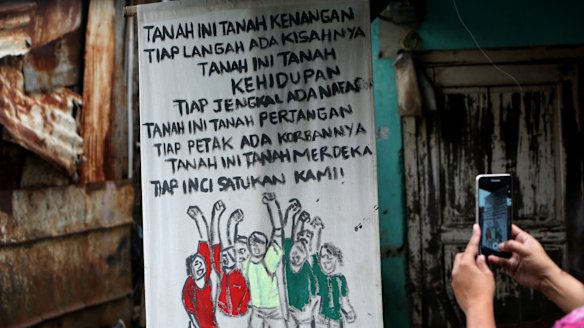 TANAH INI TANAH KENANGAN
TIAP LANGAH ADA KISAHNYA
TANAH INI TANAH
KEHIDUPAN
TIAP JENGKAL ADA NAFAS
TANAH INI TANAH PERJANGAN
TIAP PETAK ADA KORBANNYA
TANAH INI TANAH MERDEKA
TIAP INCI SATUKAN KAMI!